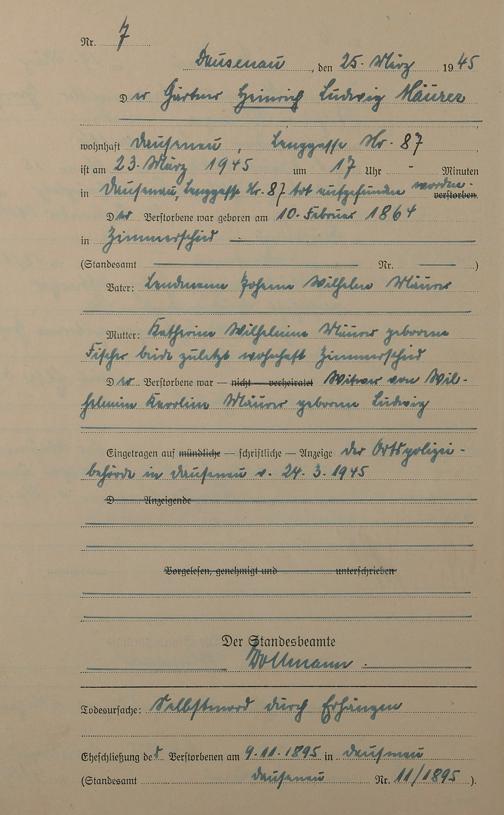 Nr. 7
Dausenau, den 25. März 1945
Der Gärtner Heinrich Ludwig Maurer
wohnhaft Dausenau, Langgasse Nr. 87
ist am 23. März 1945 um 17 Uhr - Minuten
in Dausenau, Langgasse Nr. 87 tot aufgefunden worden. verstorben.
Der Verstorbene war geboren am 10. Februar 1864
in Zimmerschied
(Standesamt Nr. )
Vater: Landmann Johann Wilhelm Maurer
Mutter: Katharina Wilhelmine Maurer geborene
Fischer beide zuletzt wohnhaft Zimmerschied
Der Verstorbene war — nicht — verheiratet Witwer von Wil-
helmine Karoline Maurer geborene Ludwig
Eingetragen auf mündliche — schriftliche — Anzeige der Ortspolizei-
behörde in Dausenau v. 24.3.1945
D Anzeigende
Vorgelesen, genehmigt und unterschrieben
Der Standesbeamte
Todesursache: Selbstmord durch Erhängen
Eheschließung des Verstorbenen am 9.11.1895 in Dausenau
(Standesamt Dausenau Nr. 11/1895).